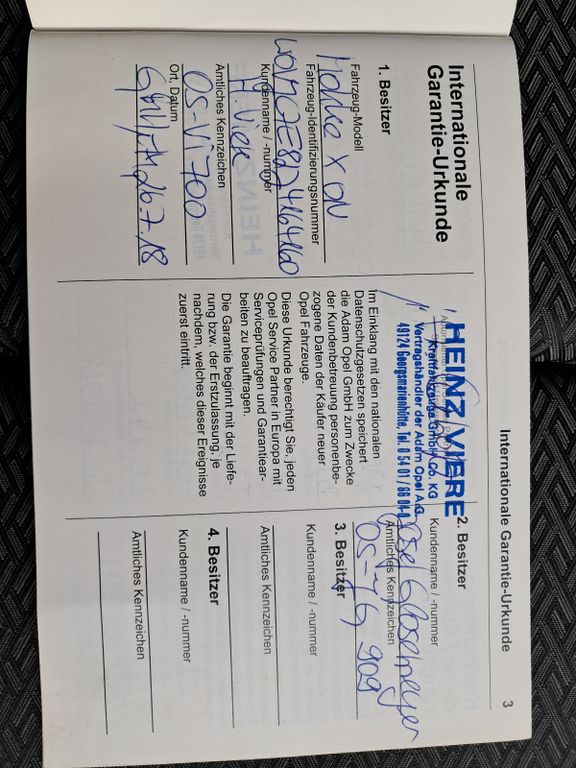 Internationale Garantie-Urkunde
3
Internationale
Garantie-Urkunde
1. Besitzer
Fahrzeug-Modell
Mokka X ON
Fahrzeug-Identifizierungsnummer
Kundenname / -nummer
H. Viere
Amtliches Kennzeichen
OS-Vi 700
Ort, Datum
26.7.18
HEINZ VIERE
Kraftfahrzeuge GmbH & Co. KG
Vertragshändler der Adam Opel AG
49124 Georgsmarienhütte, Tel. 0 54 01 / 86 04-0
Im Einklang mit den nationalen
Datenschutzgesetzen speichert
die Adam Opel GmbH zum Zwecke
der Kundenbetreuung personenbe-
zogene Daten der Käufer neuer
Opel Fahrzeuge.
Diese Urkunde berechtigt Sie, jeden
Opel Service Partner in Europa mit
Serviceprüfungen und Garantiear-
beiten zu beauftragen.
Die Garantie beginnt mit der Liefe-
rung bzw. der Erstzulassung, je
nachdem, welches dieser Ereignisse
zuerst eintritt.
2. Besitzer
Kundenname / -nummer
Amtliches Kennzeichen
3. Besitzer
Kundenname / -nummer
Amtliches Kennzeichen
4. Besitzer
Kundenname / -nummer
Amtliches Kennzeichen